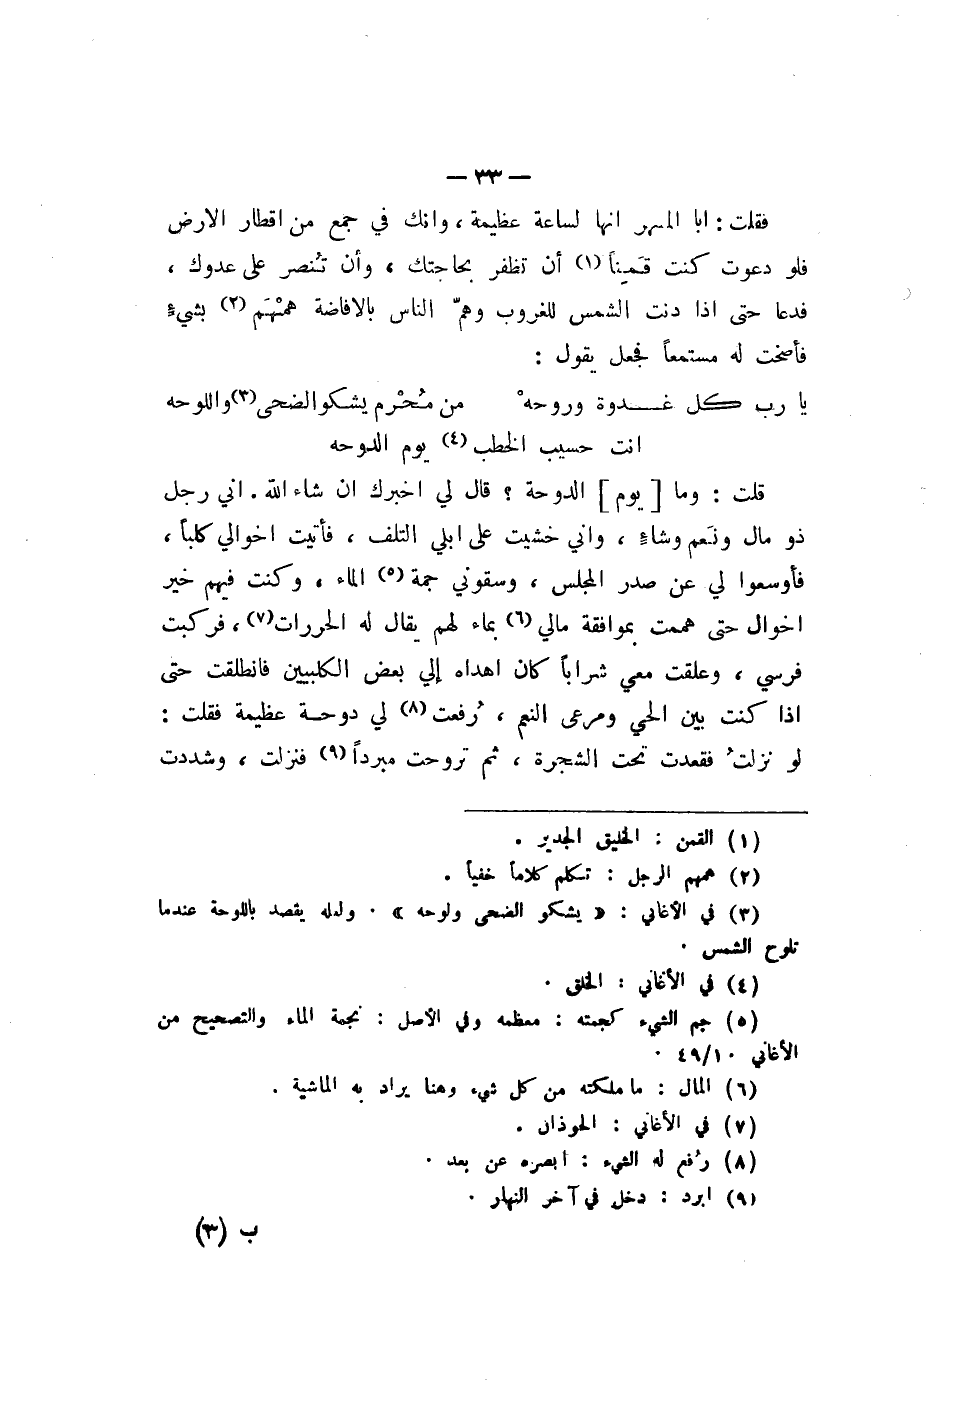 — ٣٣ —
فقلت : ابا المسهر انها لساعة عظيمة ، وانك في جمع من اقطار الارض
فلو دعوت كنت قَميناً (١) أن تظفر بحاجتك ، وأن تُنصر على عدوك ،
فدعا حتى اذا دنت الشمس للغروب وهمّ الناس بالافاضة همْهَم (٢) بشيءٍ
فأصخت له مستمعاً فجعل يقول :
يا رب كل غدوة وروحهْ من مُحْرم يشكو الضحى (٣) واللوحه
انت حسيب الخطب (٤) يوم الدوحه
قلت : وما [ يوم ] الدوحة ؟ قال لي اخبرك ان شاء الله . اني رجل
ذو مال ونَعم وشاءٍ ، واني خشيت على ابلي التلف ، فأتيت اخوالي كلباً ،
فأوسعوا لي عن صدر المجلس ، وسقوني جمة (٥) الماء ، وكنت فيهم خير
اخوال حتى هممت بموافقة مالي (٦) بماء لهم يقال له الحررات (٧) ، فركبت
فرسي ، وعلقت معي شراباً كان اهداه إلي بعض الكلبيين فانطلقت حتى
اذا كنت بين الحي ومرعى النعم ، رُفعت (٨) لي دوحة عظيمة فقلت :
لو نزلتُ فقعدت تحت الشجرة ، ثم تروحت مبرداً (٩) فنزلت ، وشددت
(١) القمن : الخليق الجدير .
(٢) همهم الرجل : تكلم كلاماً خفياً .
(٣) في الأغاني : « يشكو الضحى ولوحه » . ولعله يقصد باللوحة عندما
تلوح الشمس .
(٤) في الأغاني : الخلق .
(٥) جم الشيء كجمته : معظمه وفي الأصل : نجمة الماء والتصحيح من
الأغاني ١٠/٤٩ .
(٦) المال : ما ملكته من كل شيء وهنا يراد به الماشية .
(٧) في الأغاني : الحوذان .
(٨) رُفع له الشيء : ابصره عن بعد .
(٩) ابرد : دخل في آخر النهار .
ب (٣)